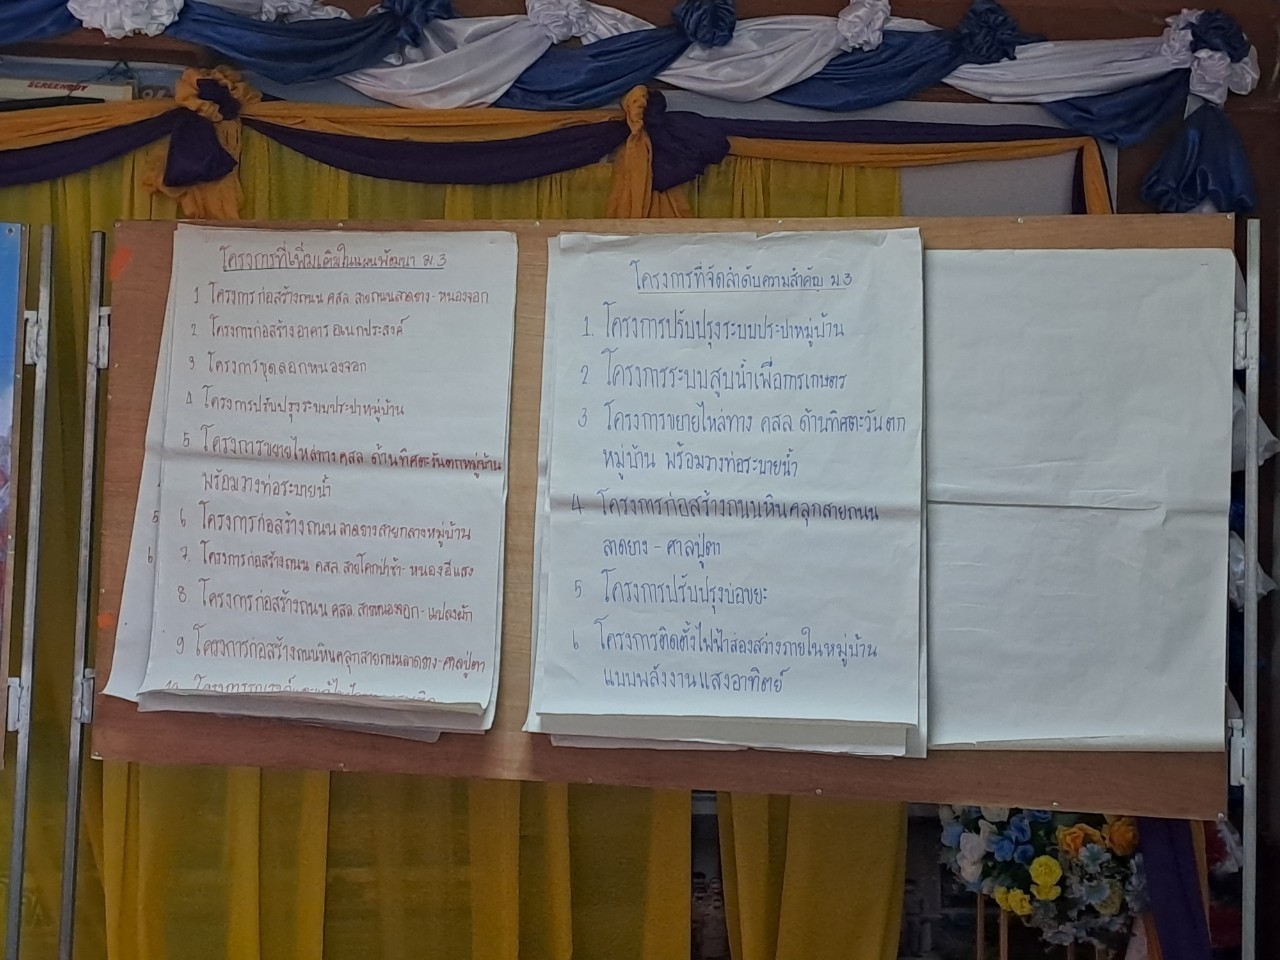 SCREENBOY
โครงการที่เพิ่มเติมในแผนพัฒนา ม.3
1 โครงการก่อสร้างถนน คสล. สายถนนลาดยาง - หนองจอก
2 โครงการก่อสร้าง อาคาร อเนกประสงค์
3 โครงการขุดลอกหนองจอก
4 โครงการปรับปรุงระบบประปาหมู่บ้าน
5 โครงการขยายไหล่ทาง คสล. ด้านทิศตะวันตกหมู่บ้าน
พร้อมวางท่อระบายน้ำ
5 6 โครงการก่อสร้างถนน ลาดยางสายกลางหมู่บ้าน
6 7. โครงการก่อสร้างถนน คสล. สายโคกป่าช้า - หนองอีแสง
8 โครงการก่อสร้างถนน คสล. สายหนองจอก - แปลงผัก
9 โครงการก่อสร้างถนนหินคลุกสายถนนลาดยาง - ศาลปู่ตา
10 โครงการ
โครงการที่จัดลำดับความสำคัญ ม.3
1. โครงการปรับปรุงระบบประปาหมู่บ้าน
2 โครงการระบบสูบน้ำเพื่อการเกษตร
3 โครงการขยายไหล่ทาง คสล. ด้านทิศตะวันตก
หมู่บ้าน พร้อมวางท่อระบายน้ำ
4 โครงการก่อสร้างถนนหินคลุกสายถนน
ลาดยาง - ศาลปู่ตา
5 โครงการปรับปรุงบ่อขยะ
6 โครงการติดตั้งไฟฟ้าส่องสว่างภายในหมู่บ้าน
แบบพลังงานแสงอาทิตย์